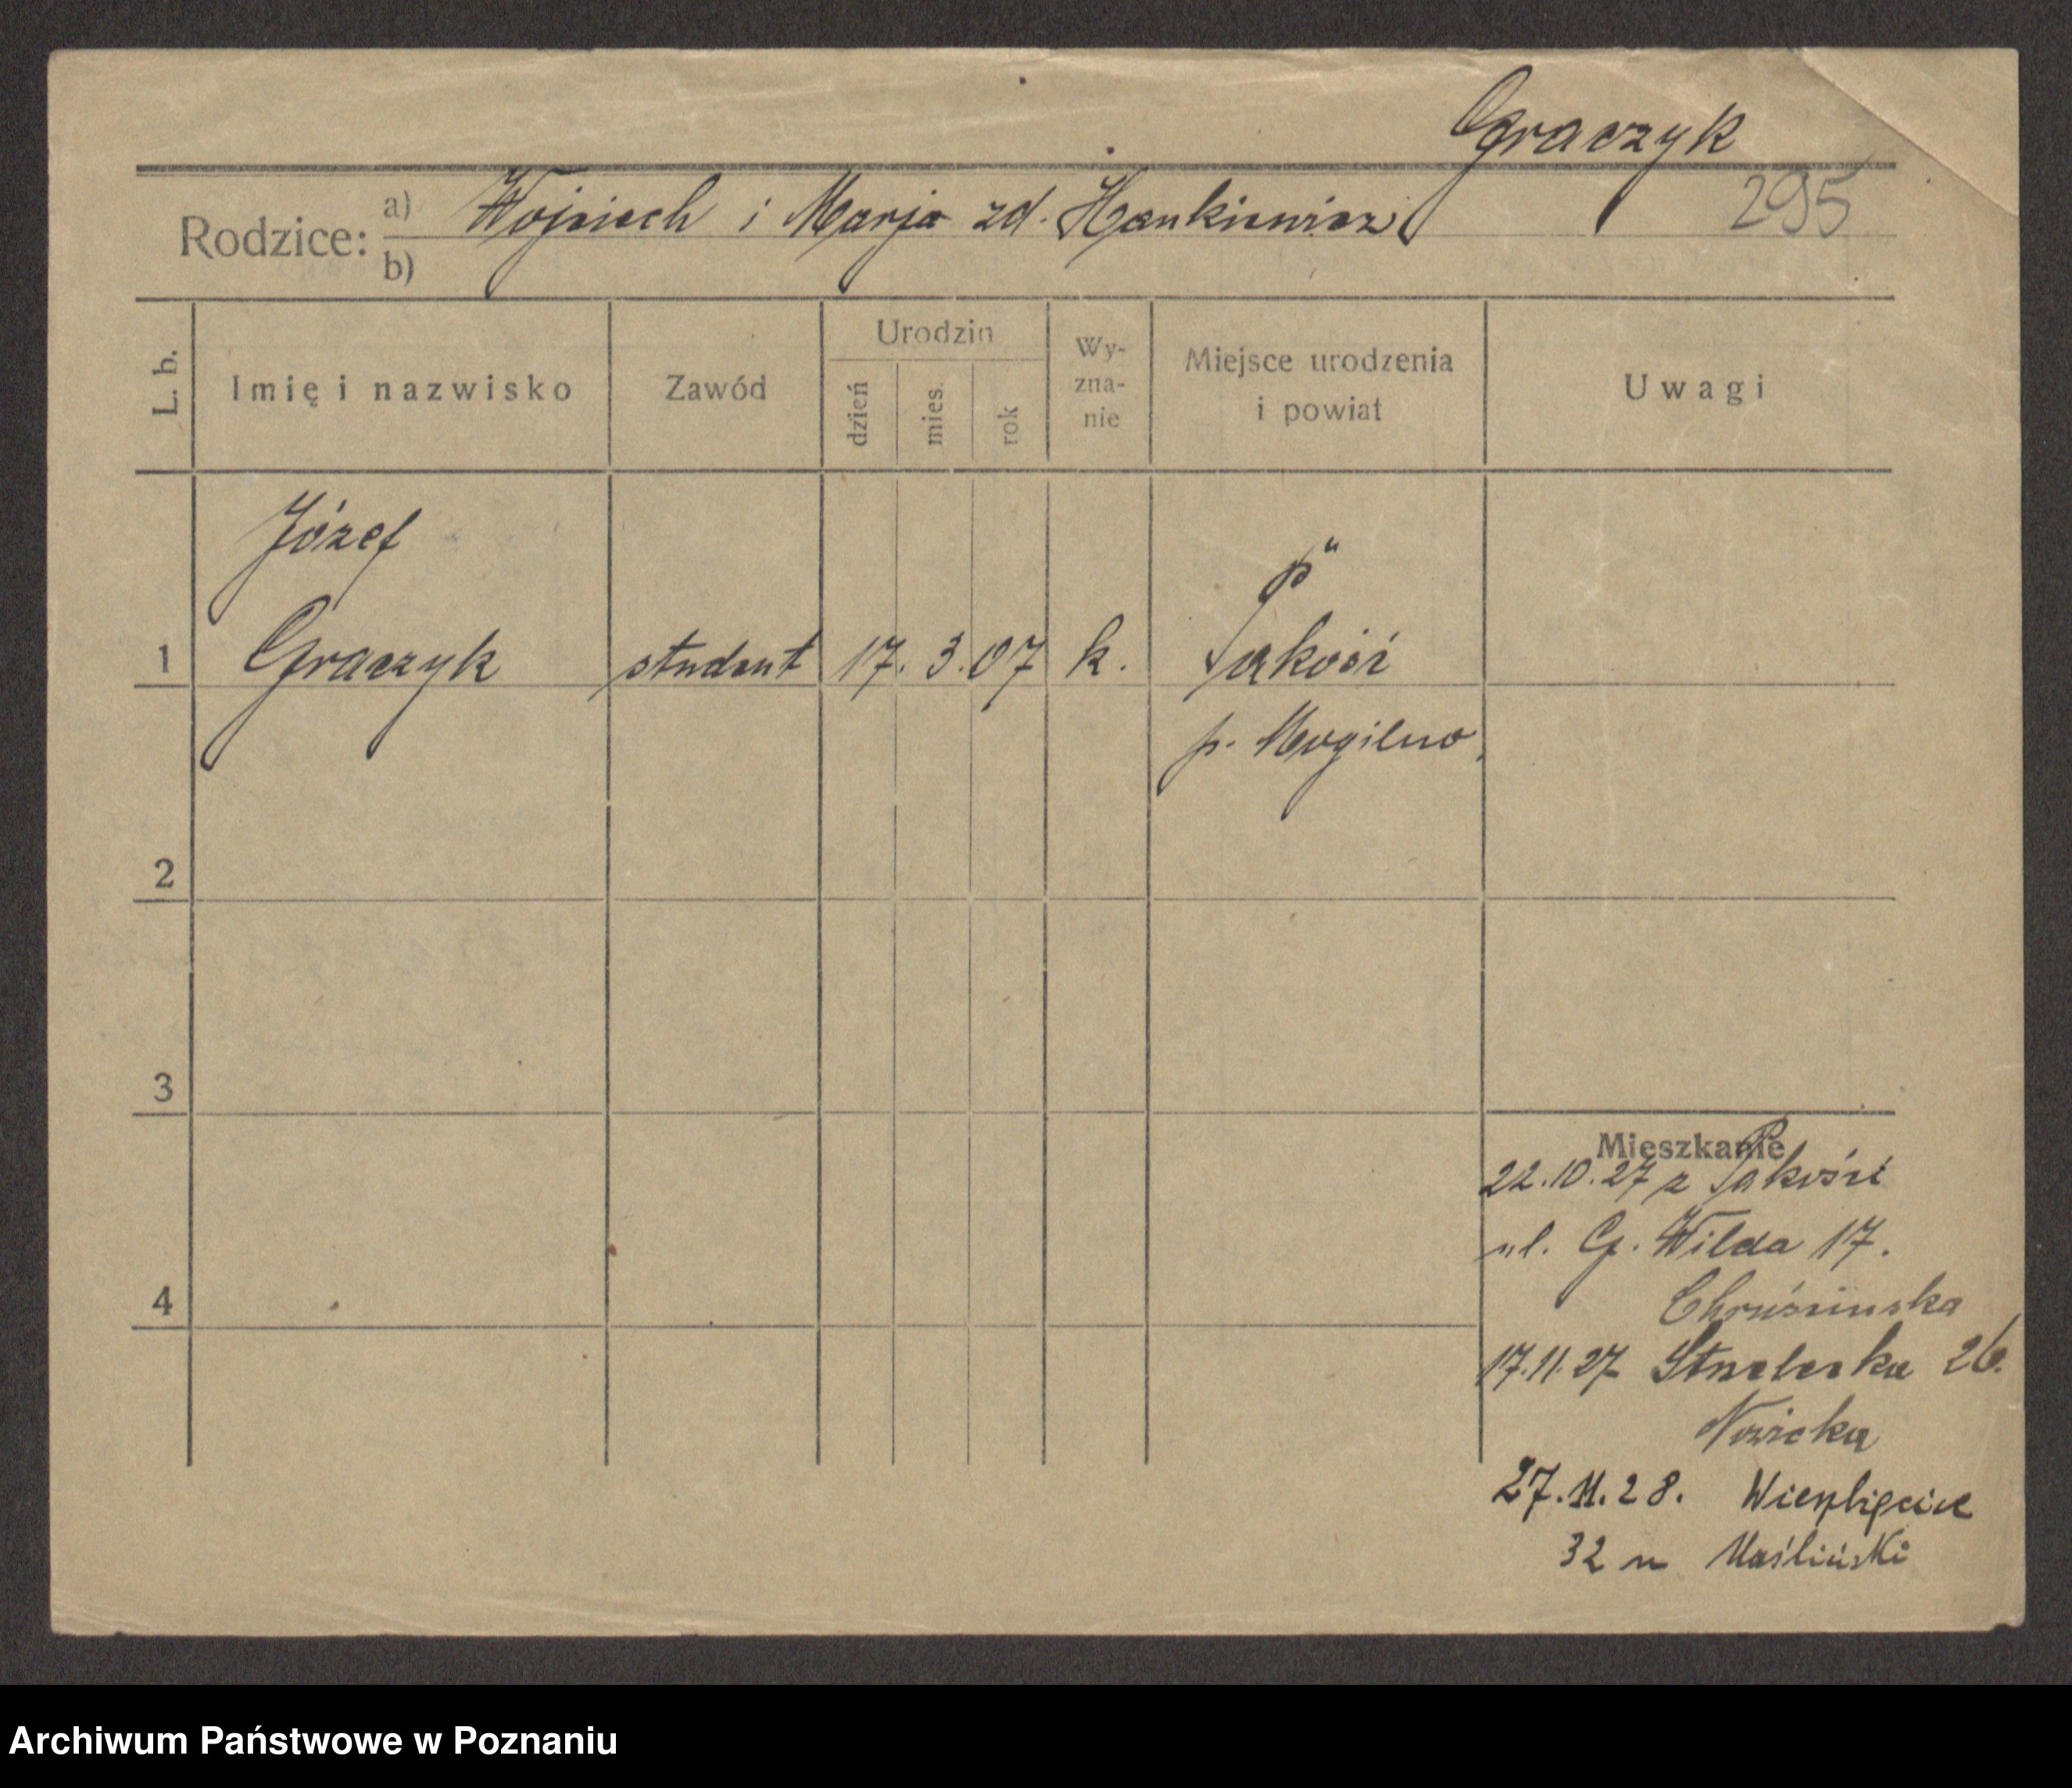 Graczyk
295
Rodzice: a) Wojciech i Marja zd. Hankiewicz
b)
L. b. Imię i nazwisko Zawód Urodzin dzień mies. rok Wy-zna-nie Miejsce urodzenia i powiat Uwagi
Józef
"P"
1 Graczyk student 17. 3. 07 k. Pakość
p. Mogilno.
2
3
Mieszkanie
22.10.27 z Pakości
ul. G. Wilda 17.
4
Chruścinska
17.11.27 Strzelecka 26.
Nowicka
27.11.28. Wierzbięcice
32 u Maśliński
Archiwum Państwowe w Poznaniu